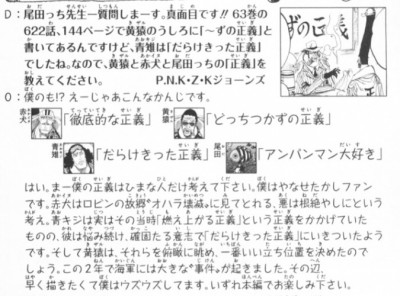 D：尾田っち先生一質問しまーす。真面目です!! 63巻の
622話、144ページで黄猿のうしろに「〜ずの正義」と
書いてあるんですけど、青雉は「だらけきった正義」
でしたね。なので、黄猿と赤犬と尾田っちの「正義」を
教えてください。 P.N.K・Z・Kジョーンズ
ずの正義
O：僕のも!? えーじゃあこんなかんじです。
赤犬「徹底的な正義」 黄猿「どっちつかずの正義」
青雉「だらけきった正義」 尾田「アンパンマン大好き」
はい。まー僕の正義はしまな人だけ考えて下さい。僕はやなせたかしファン
です。赤犬はロビンの故郷"オハラ壊滅"に見てとれる、悪は根絶やしにという
考え。青キジは実はその当時「燃え上がる正義」というのをかかげていた
ものの、彼は悩み続け、確固たる意志で「だらけきった正義」にいきついたよう
です。そして黄猿は、それらを俯瞰に眺め、一番いい立ち位置を決めたので
しょう。この2年で海軍には大きな"事件"が起きました。その辺、
早く描きたくて僕はウズウズしてます。いずれ本編でお楽しみ下さい。